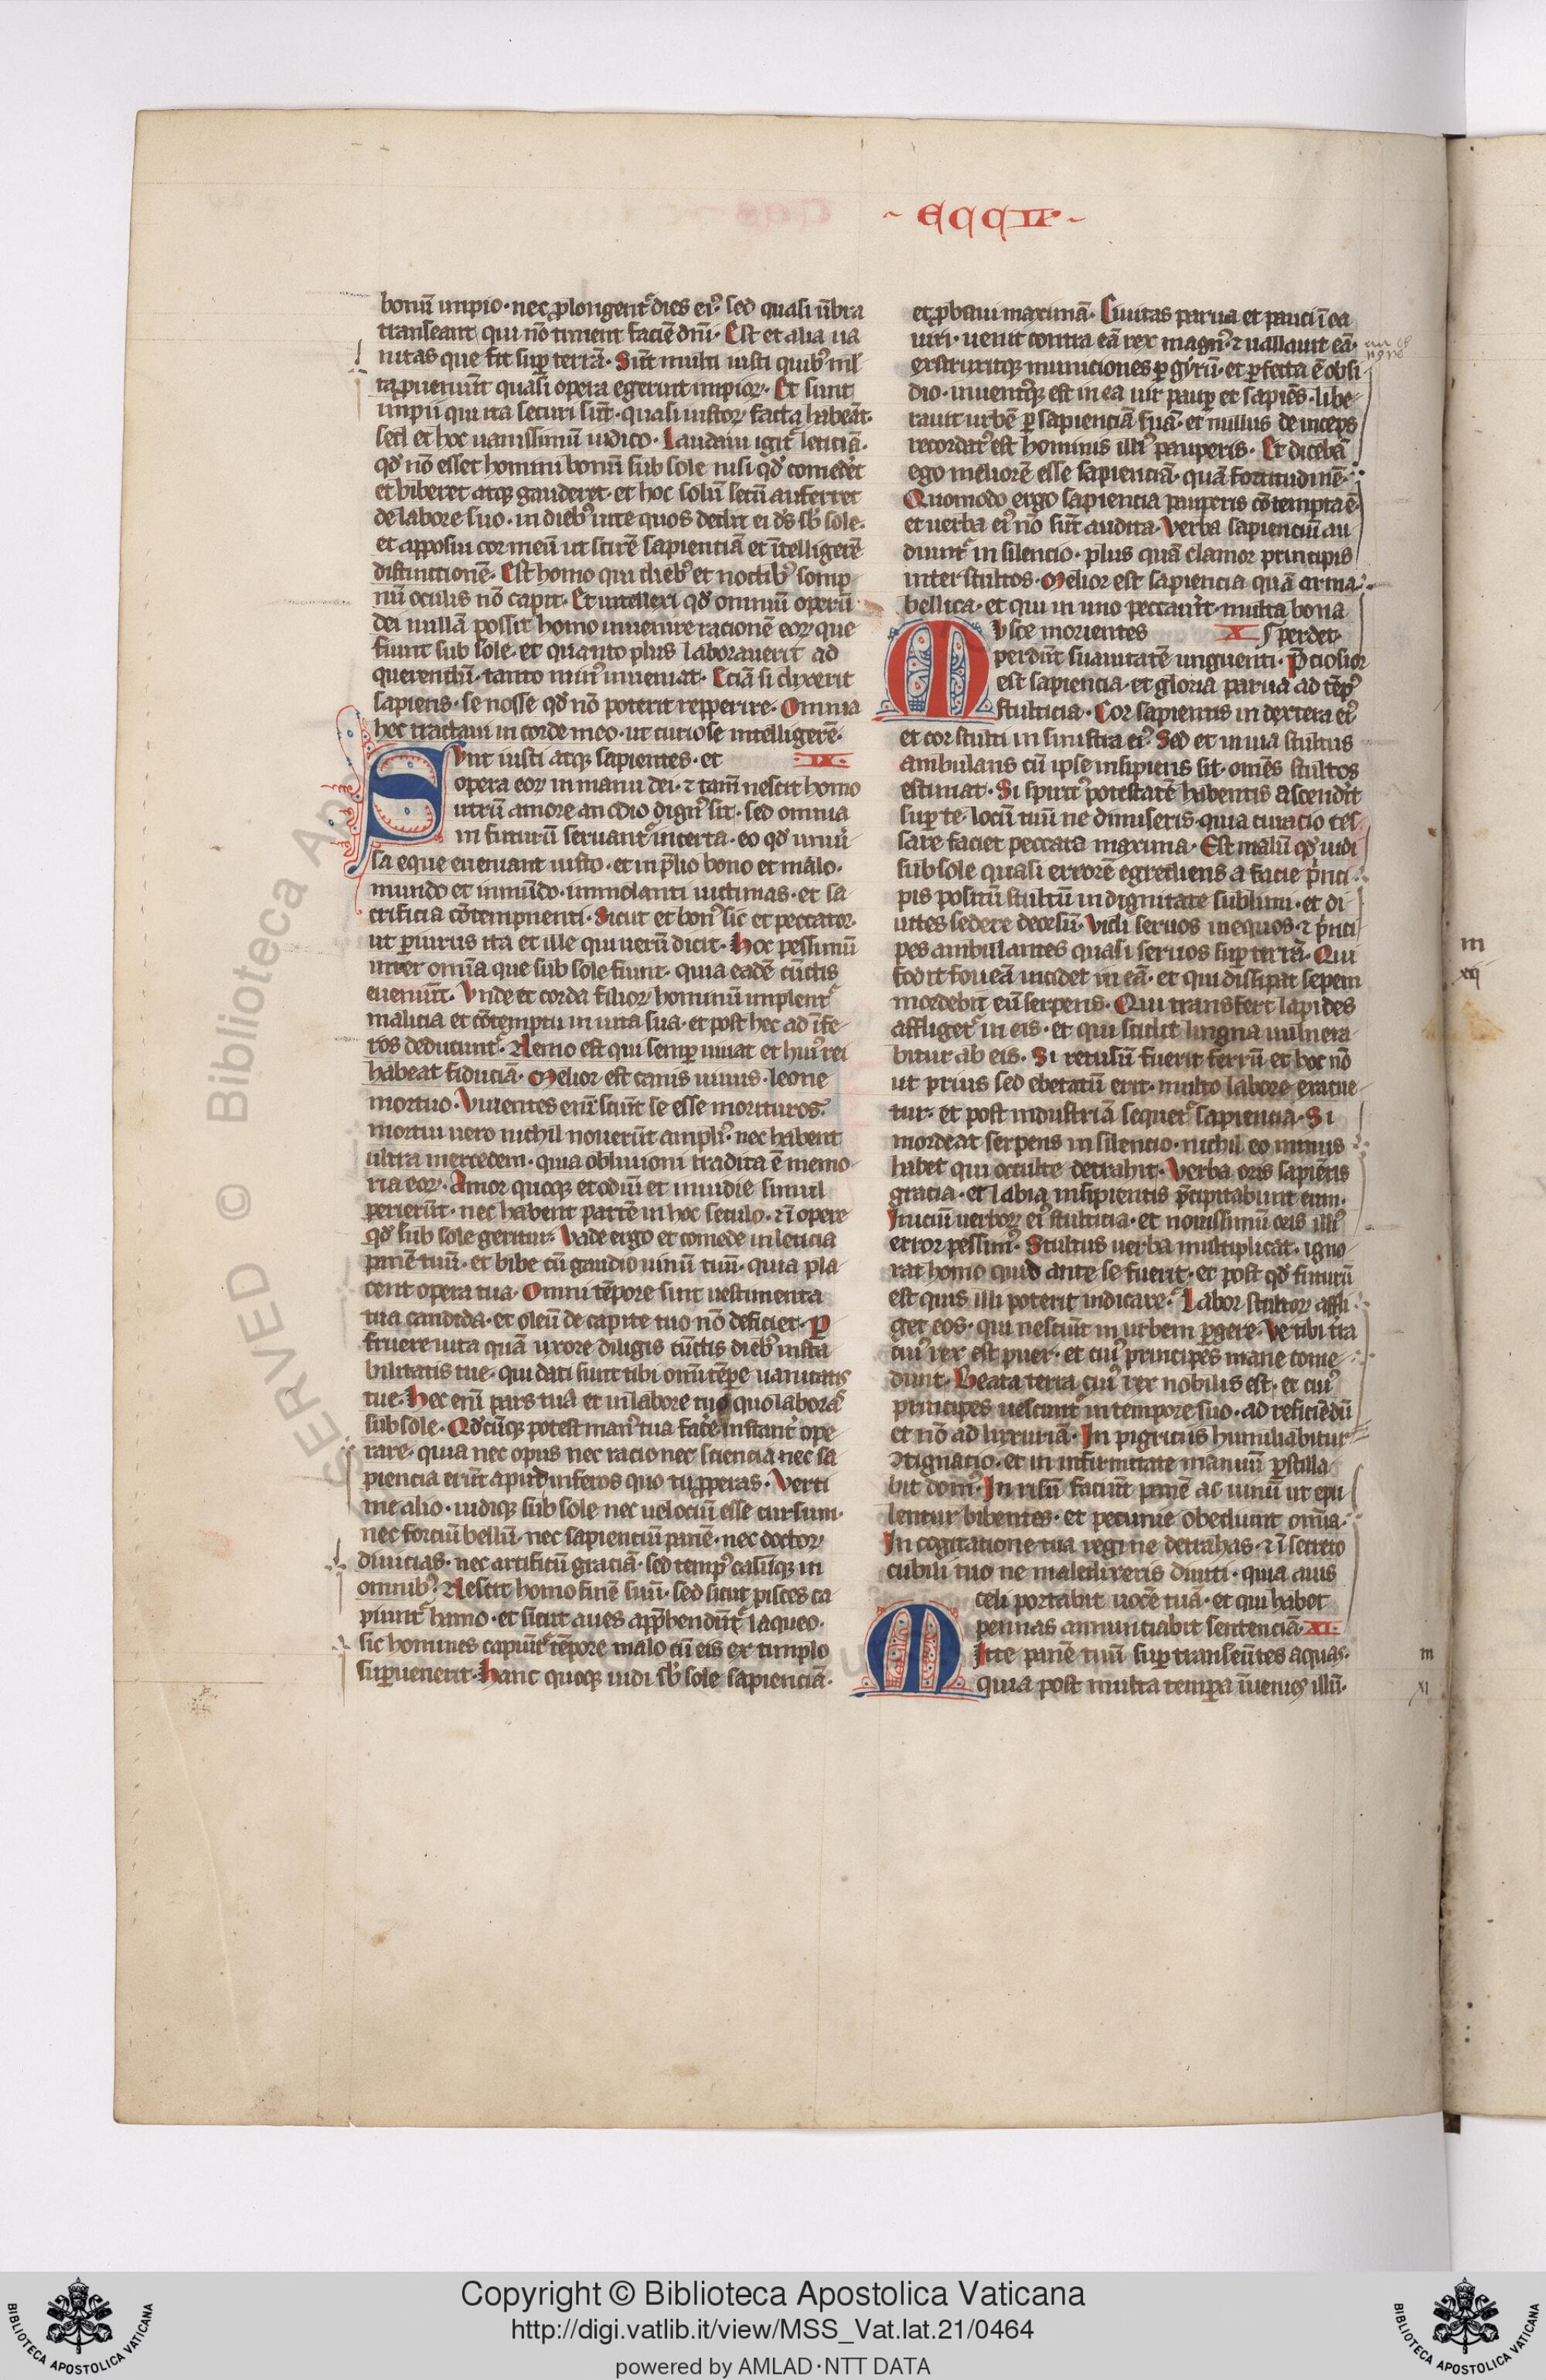 ECCLE
bonū impio · nec ꝓlongent᷑ dies eiꝰ · sed quasi ūbra
transeant qui nō timent faciē dn̄i · Est et alia ua
nitas que fit suꝑ terrā · Sūt multi iusti quibꝰ ml̄
ta ꝓueniūt quasi opera egerint impioꝝ · Et sunt
impii qui ita securi sūt · quasi iustoꝝ facta habeāt ·
sed et hoc uanissimū iudico · Laudaui igit᷑ leticiā ·
qd̓ nō esset homini bonū sub sole nisi qd̓ comed̓et
et biberet atqꝫ gauderet · et hoc solū secū auferret
de labore suo · in diebꝰ uite quos dedit ei dꝰs sb̓ sole ·
et apposui cor meū ut scirē sapientiā et ītelligerē
distinctionē · Est homo qui diebꝰ et noctibꝰ somp
nū oculis nō capit · Et intellexi qd̓ omniū operū
dei nullā possit homo inuenire racionē eoꝝ que
fiunt sub sole · et quanto plus laborauerit ad
querendū · tanto minꝰ inueniat · Eciā si dixerit
sapiens · se nosse qd̓ nō poterit repperire · Omnia
hec tractaui in corde meo · ut curiose intelligerē ·
Sunt iusti atqꝫ sapientes · et · IX ·
opera eoꝝ in manu dei · ⁊ tam̄ nescit homo
utrū amore an odio dignꝰ sit · sed omnia
in futurū seruant᷑ incerta · eo qd̓ uniū
sa eque eueniant iusto · et imp̄io bono et malo ·
mundo et inmūdo · immolanti uictimas · et sa
crificia cōtempnenti · Sicut et bonꝰ sic et peccator ·
ut ꝑiurus ita et ille qui uerū dicit · Hoc pessimū
inter om̄ia que sub sole fiunt · quia eadē cūctis
eueniūt · Vnde et corda filioꝝ hominū implent᷑
malicia et cōtemptu in uita sua · et post hec ad īfe
ros deducunt᷑ · Nemo est qui semꝑ uiuat et huiꝰ rei
habeat fiduciā · Melior est canis uiuus · leone
mortuo · Viuentes enī sciūt se esse morituros ·
mortui uero nichil nouerūt ampliꝰ · nec habent
ultra mercedem · quia obliuioni tradita ē memo
ria eoꝝ · Amor quoqꝫ et odiū et inuidie simul
perierūt · nec habent partē in hoc seculo · ⁊ ī opere
qd̓ sub sole geritur · Vade ergo et comede in leticia
panē tuū · et bibe cū gaudio uinū tuū · quia pla
cent opera tua · Omni tēpore sint uestimenta
tua candida · et oleū de capite tuo nō deficiet · P
fruere uita quā uxore diligis cūctis diebꝰ insta
bilitatis tue · qui dati sunt tibi om̄i tēpe uanitatis
tue · Hec enī pars tua et in labore tuo quo laboras
sub sole · Qd̓cūqꝫ potest manꝰ tua fac̓e instant᷑ ope
rare · quia nec opus nec racio nec sciencia nec sa
piencia erūt apud inferos quo tu ꝓperas · Verti
me alio · uidiqꝫ sub sole nec uelociū esse cursum ·
nec forciū bellū · nec sapienciū panē · nec doctoꝝ
diuicias · nec artificū graciā · sed tempꝰ casūqꝫ in
omnibꝰ · Nescit homo finē suū · sed sicut pisces ca
piunt᷑ hamo · et sicut aues app̄hendūt᷑ laqueo ·
sic homines capiūt᷑ tēpore malo cū eis ex timplo
suꝑuenerit · Hanc quoqꝫ uidi sb̓ sole sapienciā ·
et ꝓbaui maximā · Ciuitas parua et pauci ī ea
uiri · uenit contra eā rex magnꝰ ⁊ uallauit eā ·
exstruxitqꝫ municiones ꝑ gyrū · et ꝑfecta ē obsi
dio · inuentqꝫ est in ea uir pauꝑ et sapiēs · libe
rauit urbē ꝑ sapienciā suā · et nullus deinceps
recordatꝰ est hominis illiꝰ pauperis · Et dicebā
ego meliorē esse sapienciā · quā fortitudinē ·
Quomodo ergo sapiencia pauperis cōtempta ē
et uerba eiꝰ nō sūt audita · Verba sapienciū au
diunt᷑ in silencio · plus quā clamor principis
inter stultos · Melior est sapiencia quā arma
bellica · et qui in uno peccauit · multa bona
Musce morientes X perdet ·
perdūt suauitatē unguenti · P̄ciosior
est sapiencia · et gloria parua ad tēpꝰ
stulticia · Cor sapientis in dextera eiꝰ
et cor stulti in sinistra eiꝰ · Sed et in uia stultus
ambulans cū ipse insipiens sit · om̄es stultos
estimat · Si spiritꝰ potestatē habentis ascend̓it
suꝑ te · locū tuū ne dimiseris · quia curacio ces
sare faciet peccata maxima · Est malū qd̓ uidi
sub sole quasi errorē egrediens a facie p̄nci
pis positū stultū in dignitate sublimi · et di
uites sedere deorsū · Vidi seruos in equos · ⁊ p̄nci
pes ambulantes quasi seruos suꝑ terrā · Qui
fodit foueā incidet in eā · et qui dissipat sepem
mordebit eū serpens · Qui transfert lapides
affliget᷑ in eis · et qui scidit lingna uulnera
bitur ab eis · Si retusū fuerit ferrū et hoc nō
ut prius sed ebetatū erit · multo labore exacue
tur · et post industriā sequet᷑ sapiencia · Si
mordeat serpens in silencio · nichil eo minus
habet qui occulte detrahit · Verba oris sapientis
gracia · et labia insipientis p̄cipitabunt eum ·
Iniciū uerboꝝ eiꝰ stulticia · et nouissimū oris illiꝰ
error pessimꝰ · Stultus uerba multiplicat · igno
rat homo quid ante se fuerit · et post qd̓ futurū
est quis illi poterit indicare · Labor stultoꝝ affli
get eos · qui nesciūt in urbem ꝑgere · Ve tibi t̓ra
cuiꝰ rex est puer · et cuiꝰ principes mane come
dunt · Beata terra cuiꝰ rex nobilis est · et cuiꝰ
principes uescunt᷑ in tempore suo · ad reficiēdū
et nō ad luxuriā · In pigriciis humiliabitur
ↄtignacio · et in infirmitate manuū ꝑstilla
bit domꝰ · In risū faciūt panē ac uinū ut epu
lentur bibentes · et pecunie obediunt om̄ia ·
In cogitatione tua regi ne detrahas · ⁊ ī secreto
cubili tuo ne maledixeris diuiti · quia auis
celi portabit uocē tuā · et qui habet
pennas annunciabit sentenciā · XI ·
Mitte panē tuū suꝑ transeūtes aquas ·
quia post multa tempora īuenies illū ·
m
m
xi
© Biblioteca Ap
ERVED
Copyright © Biblioteca Apostolica Vaticana
http://digi.vatlib.it/view/MSS_Vat.lat.21/0464
powered by AMLAD·NTT DATA
BIBLIOTECA APOSTOLICA VATICANA
BIBLIOTECA APOSTOLICA VATICANA